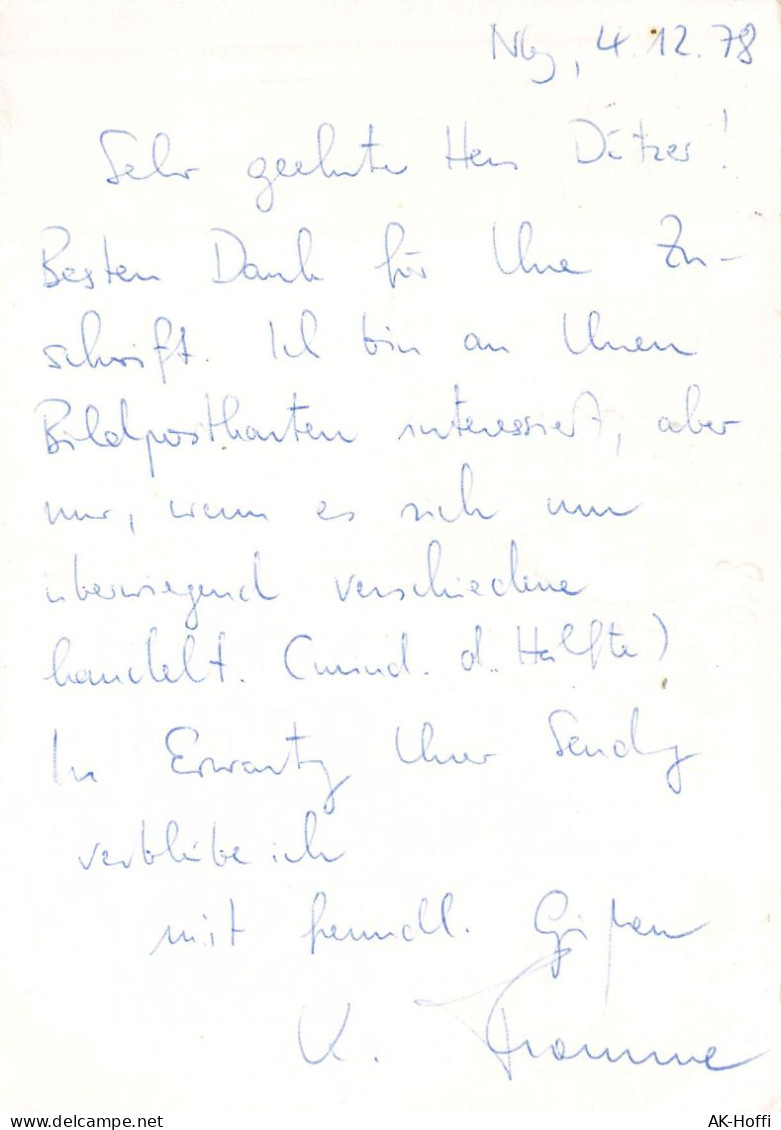 Nbg, 4.12.78
Sehr geehrter Herr Ditzer!
Besten Dank für Ihre Zu-
schrift. Ich bin an Ihren
Bildpostkarten interessiert, aber
nur, wenn es sich um
überwiegend verschiedene
handelt. (mind. d. Hälfte)
In Erwartg Ihrer Sendg
verbleibe ich
mit freundl. Grüßen
K. Fromme
AK-Hoffi